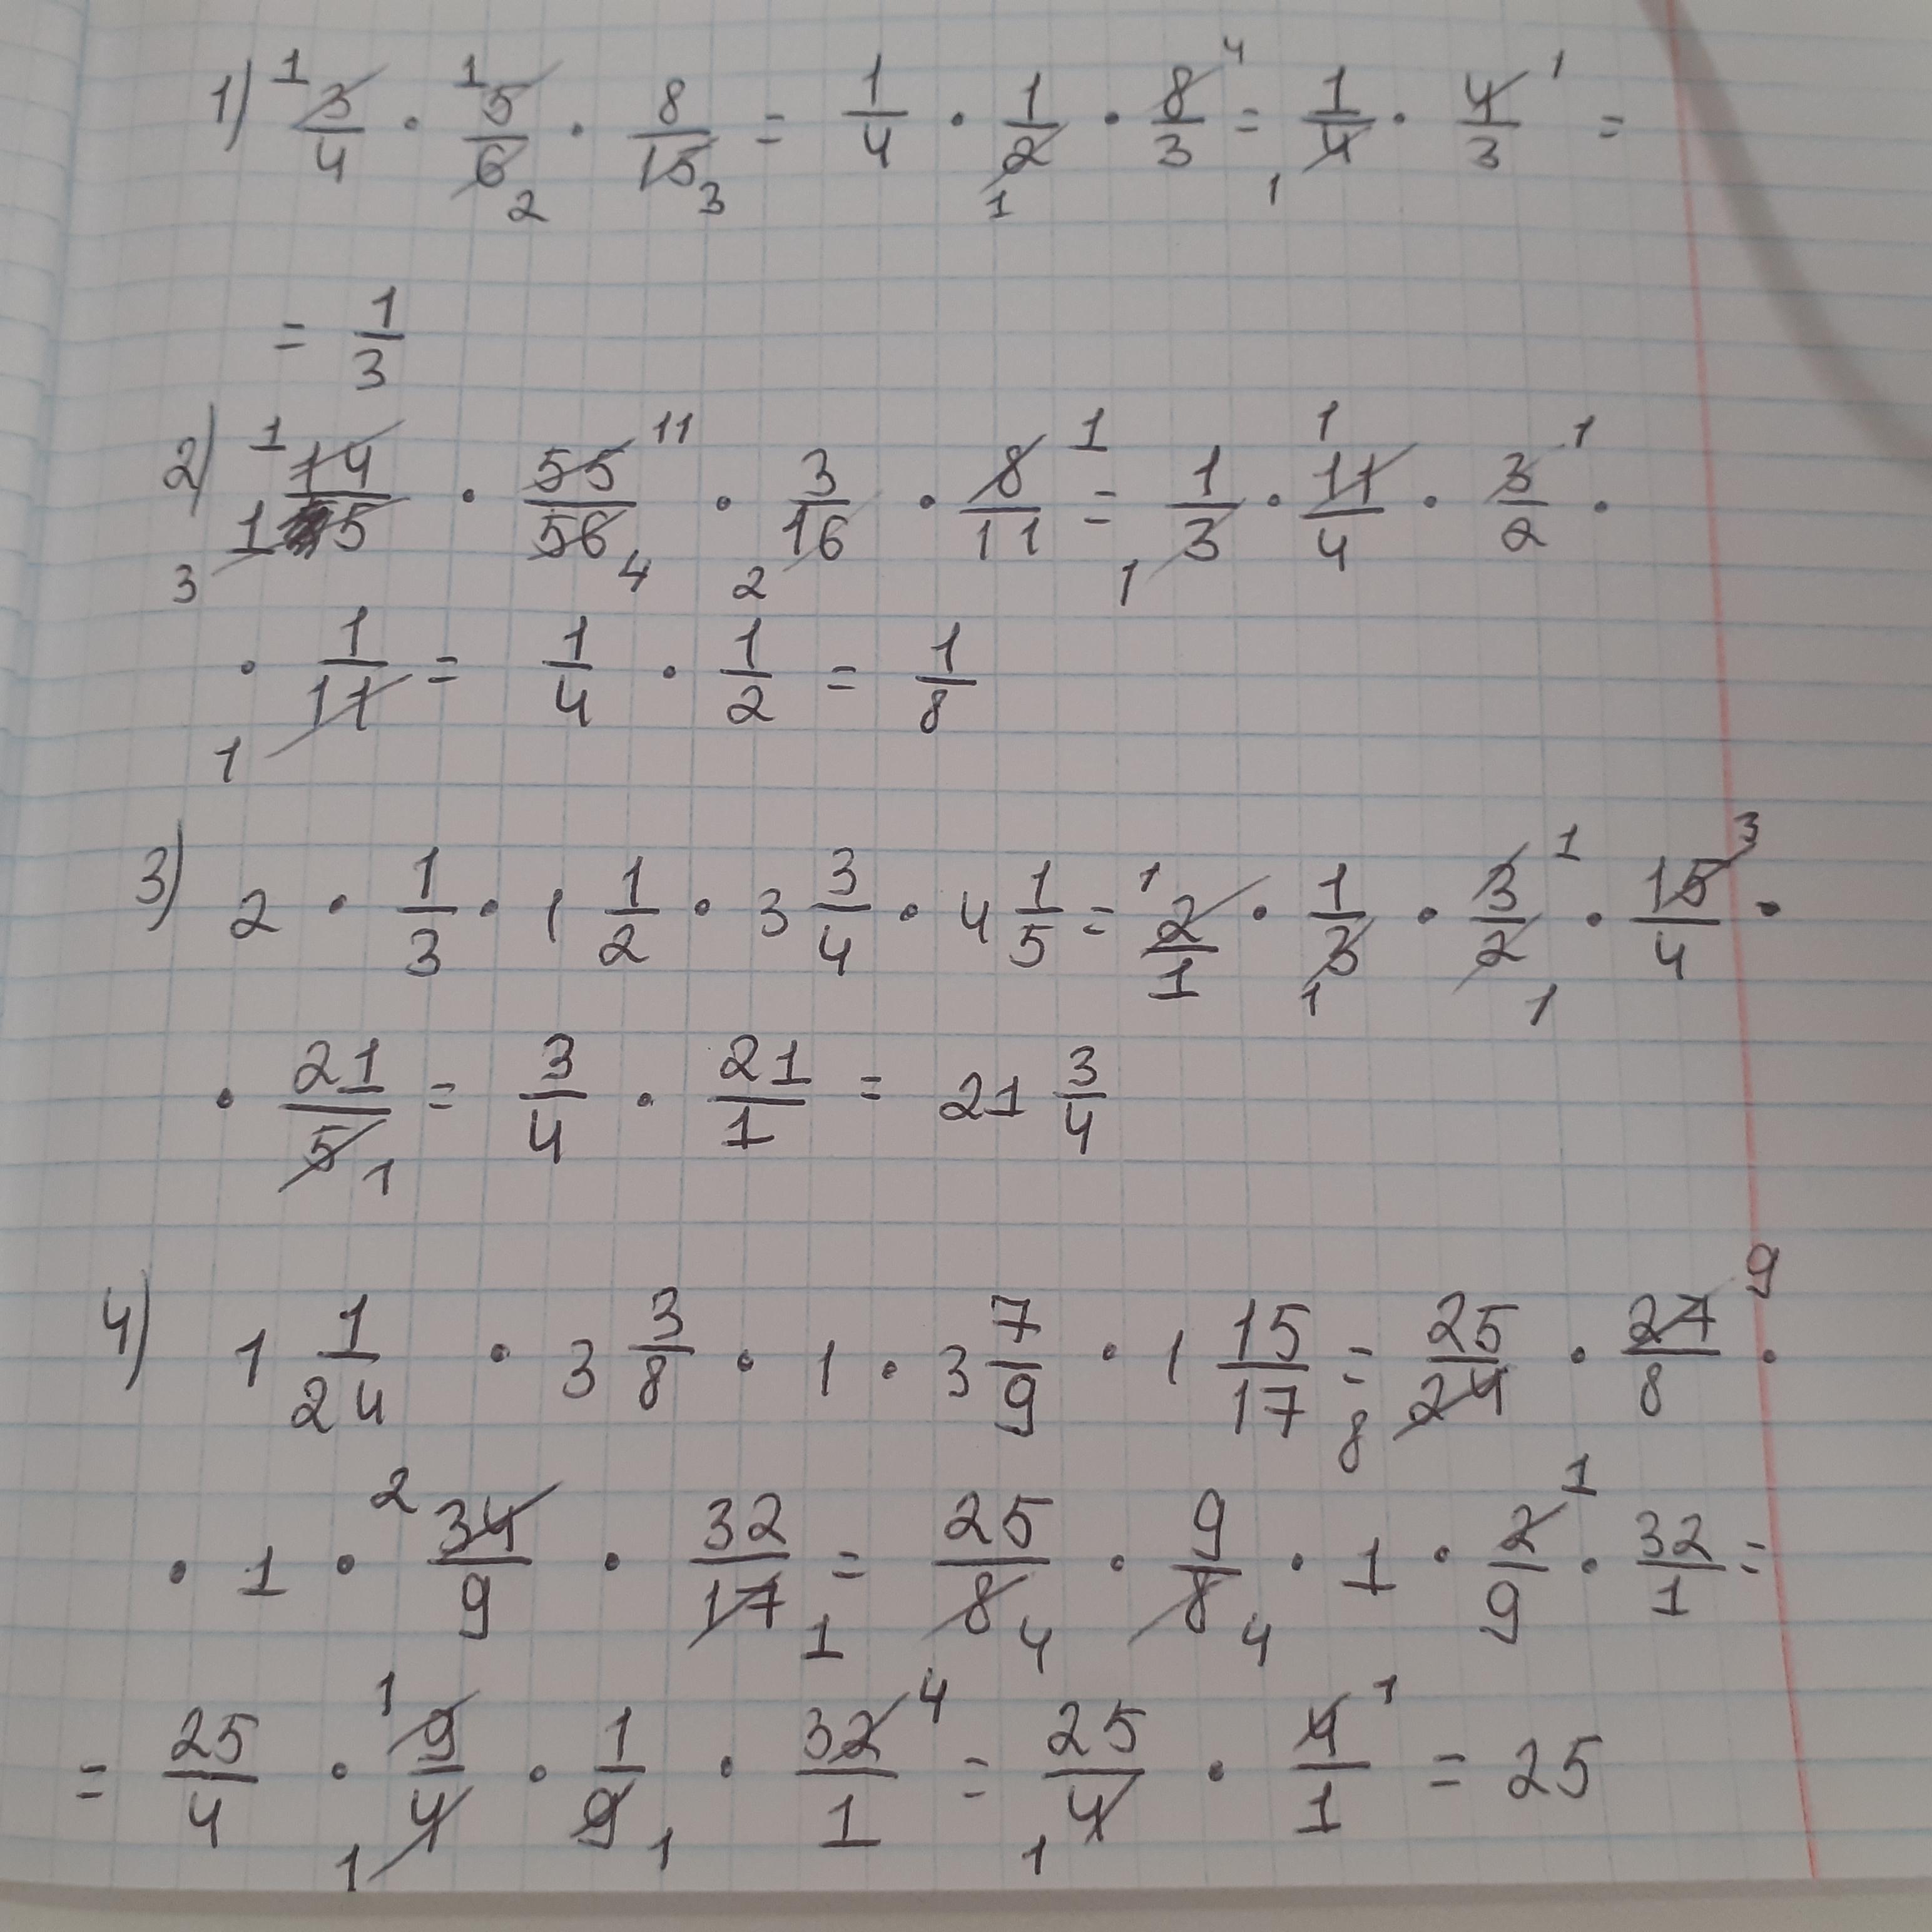 1) 3/4 · 5/6 · 8/15 = 1/4 · 1/2 · 8/3 = 1/4 · 4/3 =
= 1/3
2) 14/15 · 55/56 · 3/16 · 8/11 = 1/3 · 11/4 · 3/2 ·
· 1/11 = 1/4 · 1/2 = 1/8
3) 2 · 1/3 · 1 1/2 · 3 3/4 · 4 1/5 = 2/1 · 1/3 · 3/2 · 15/4 ·
· 21/5 = 3/4 · 21/1 = 21 3/4
4) 1 1/24 · 3 3/8 · 1 · 3 7/9 · 1 15/17 = 25/24 · 27/8 ·
· 1 · 34/9 · 32/17 = 25/8 · 9/8 · 1 · 2/9 · 32/1 =
= 25/4 · 9/4 · 1/9 · 32/1 = 25/4 · 4/1 = 25